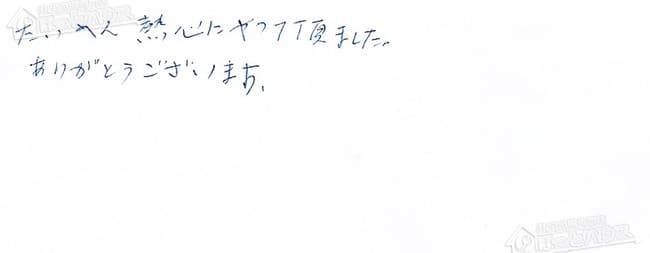 たいへん熱心にやって頂ました。
ありがとうございます。